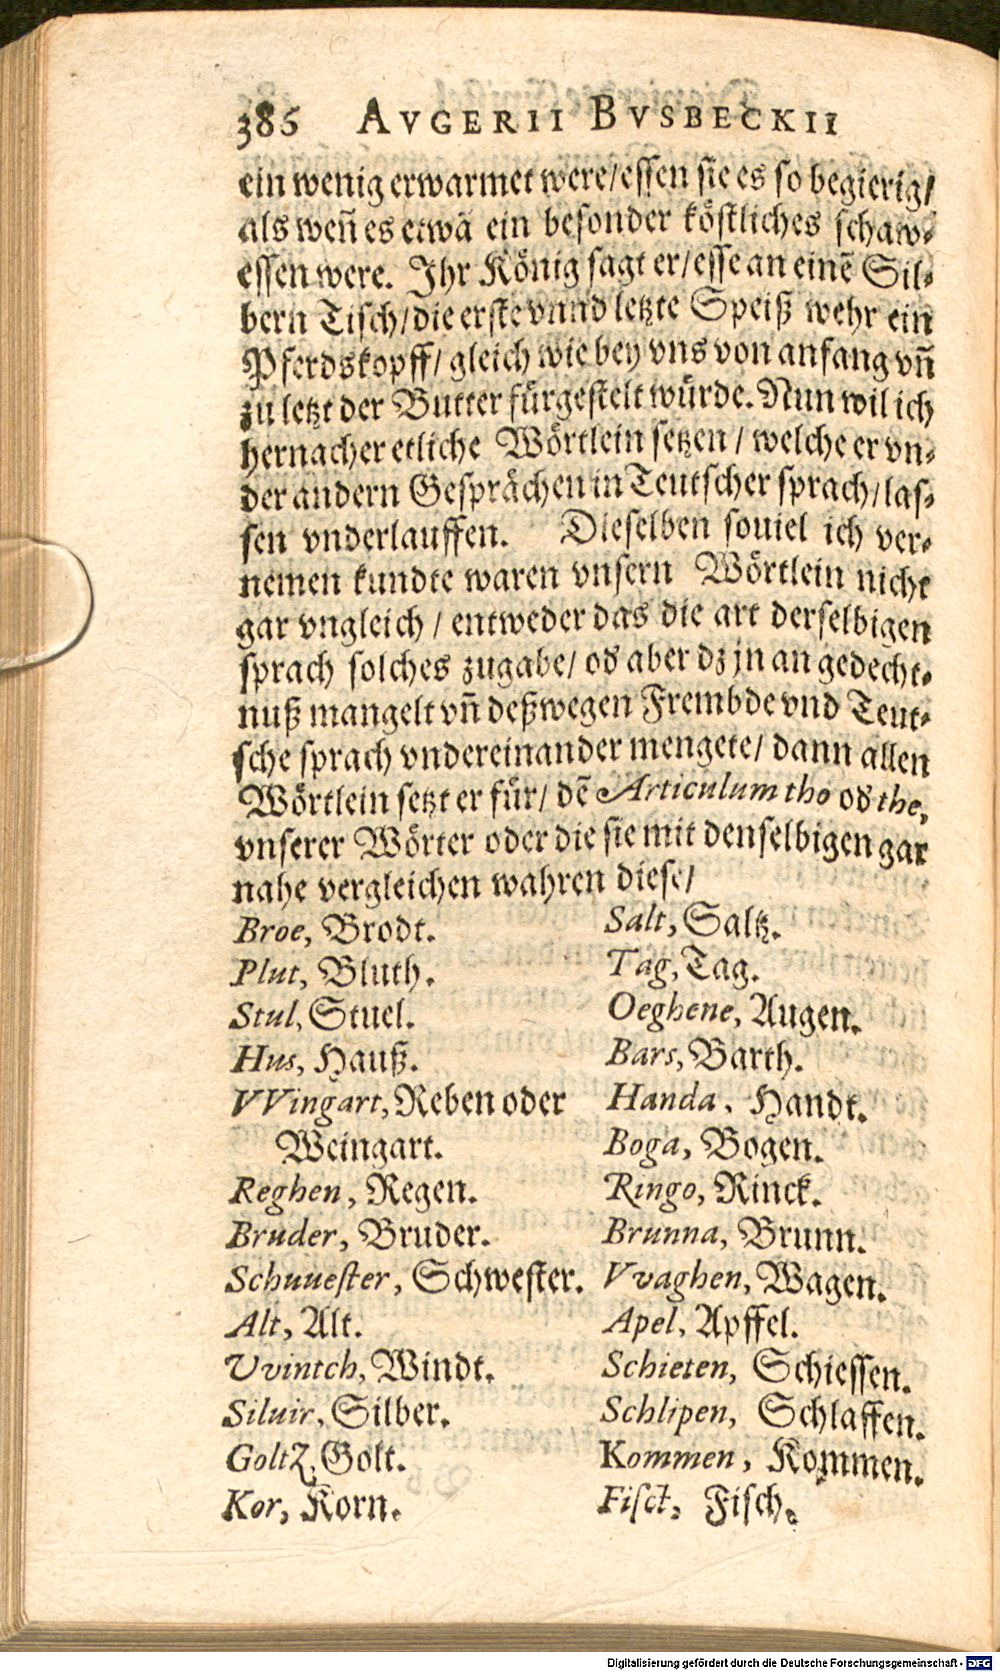 386 AVGERII BVSBECKII
ein wenig erwarmet were/essen sie es so begierig/
als weñ es etwā ein besonder köstliches schaw-
essen were. Ihr König sagt er/esse an einē Sil-
bern Tisch/die erste vnnd letzte Speiß wehr ein
Pferdskopff/gleich wie bey vns von anfang vñ
zu letzt der Butter fürgestelt würde. Nun wil ich
hernacher etliche Wörtlein setzen/welche er vn-
der andern Gesprächen in Teutscher sprach/las-
sen vnderlauffen. Dieselben souiel ich ver-
nemen kundte waren vnsern Wörtlein nicht
gar vngleich/entweder das die art derselbigen
sprach solches zugabe/od aber dz jn an gedecht-
nuß mangelt vñ deßwegen Frembde vnd Teut-
sche sprach vndereinander mengete/dann allen
Wörtlein setzt er für/dē Articulum tho od the,
vnserer Wörter oder die sie mit denselbigen gar
nahe vergleichen wahren diese/
Broe, Brodt.
Plut, Bluth.
Stul, Stuel.
Hus, Hauß.
VVingart, Reben oder
Weingart.
Reghen, Regen.
Bruder, Bruder.
Schuuester, Schwester.
Alt, Alt.
Uvintch, Windt.
Siluir, Silber.
Goltz, Golt.
Kor, Korn.
Salt, Saltz.
Tag, Tag.
Oeghene, Augen.
Bars, Barth.
Handa, Handt.
Boga, Bogen.
Ringo, Rinck.
Brunna, Brunn.
Vvaghen, Wagen.
Apel, Apffel.
Schieten, Schiessen.
Schlipen, Schlaffen.
Kommen, Kommen.
Fisct, Fisch.
Digitalisierung gefördert durch die Deutsche Forschungsgemeinschaft - DFG